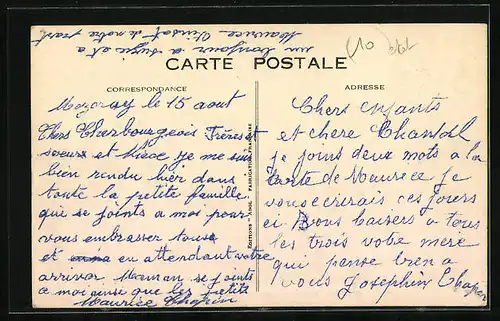 un bonjour a Suzie et a
Maurice Vinsot de notre part
£10
CARTE POSTALE
CORRESPONDANCE
ADRESSE
Mezeray le 15 aout
Chers Charbourgeois Frères et
soeurs et Nièce je me suis
bien rendu hier dans
toute la petite famille
que se joints a moi pour
vous embrasser tous
et en attendant votre
arriver Maman se joints
a moi ainsi que les petits
Maurice Chapin
EDITIONS "ADIA" FABRICATION FRANÇAISE
Chers enfants
et chere Chantal
je joins deux mots a la
carte de Maurice je
vous ecrirais ces jours
ci Bons baisers a tous
les trois votre mere
qui panse bien a
vous Josephin Chapin